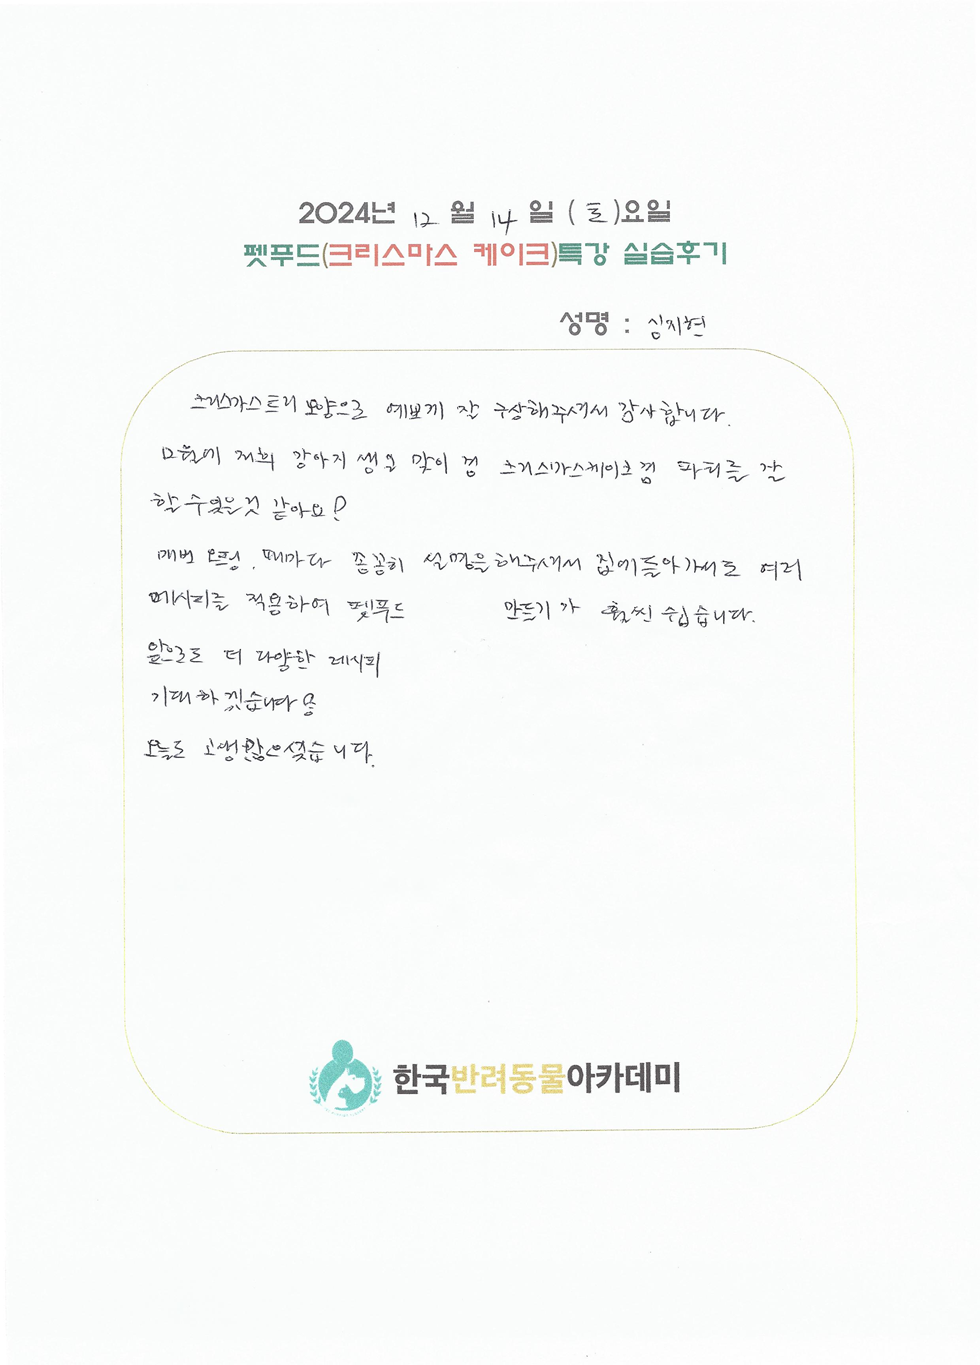 2024년 12 월 14 일 (토)요일
펫푸드(크리스마스 케이크)특강 실습후기
성명 : 심지현
크리스마스트리 모양으로 예쁘게 잘 구상해주셔서 감사합니다.
저희 강아지 생일 맞이 겸 크리스마스케이크겸 파티를 잘
할 수 있을것 같아요!
매번 때마다 꼼꼼히 설명을 해주셔서 집에돌아가서도 여러
레시피를 적용하여 펫푸드 만들기가 훨씬 쉽습니다.
앞으로도 더 다양한 레시피
기대하겠습니다
오늘도 고생많으셨습니다.
한국반려동물아카데미